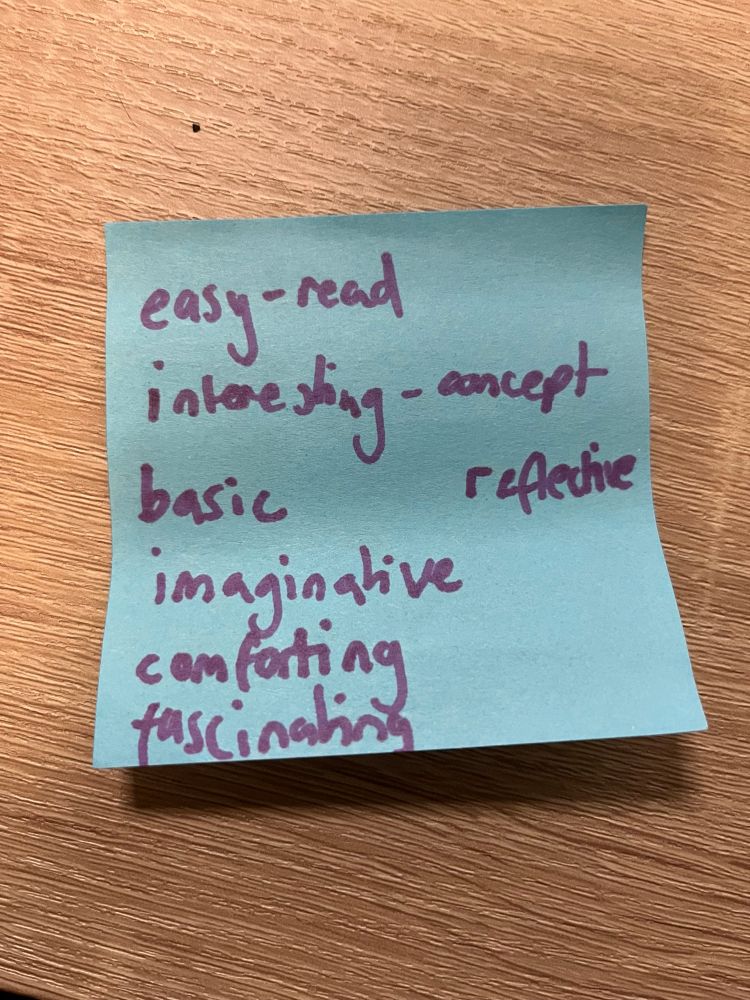 easy-read
interesting-concept
basic reflective
imaginative
comforting
fascinating